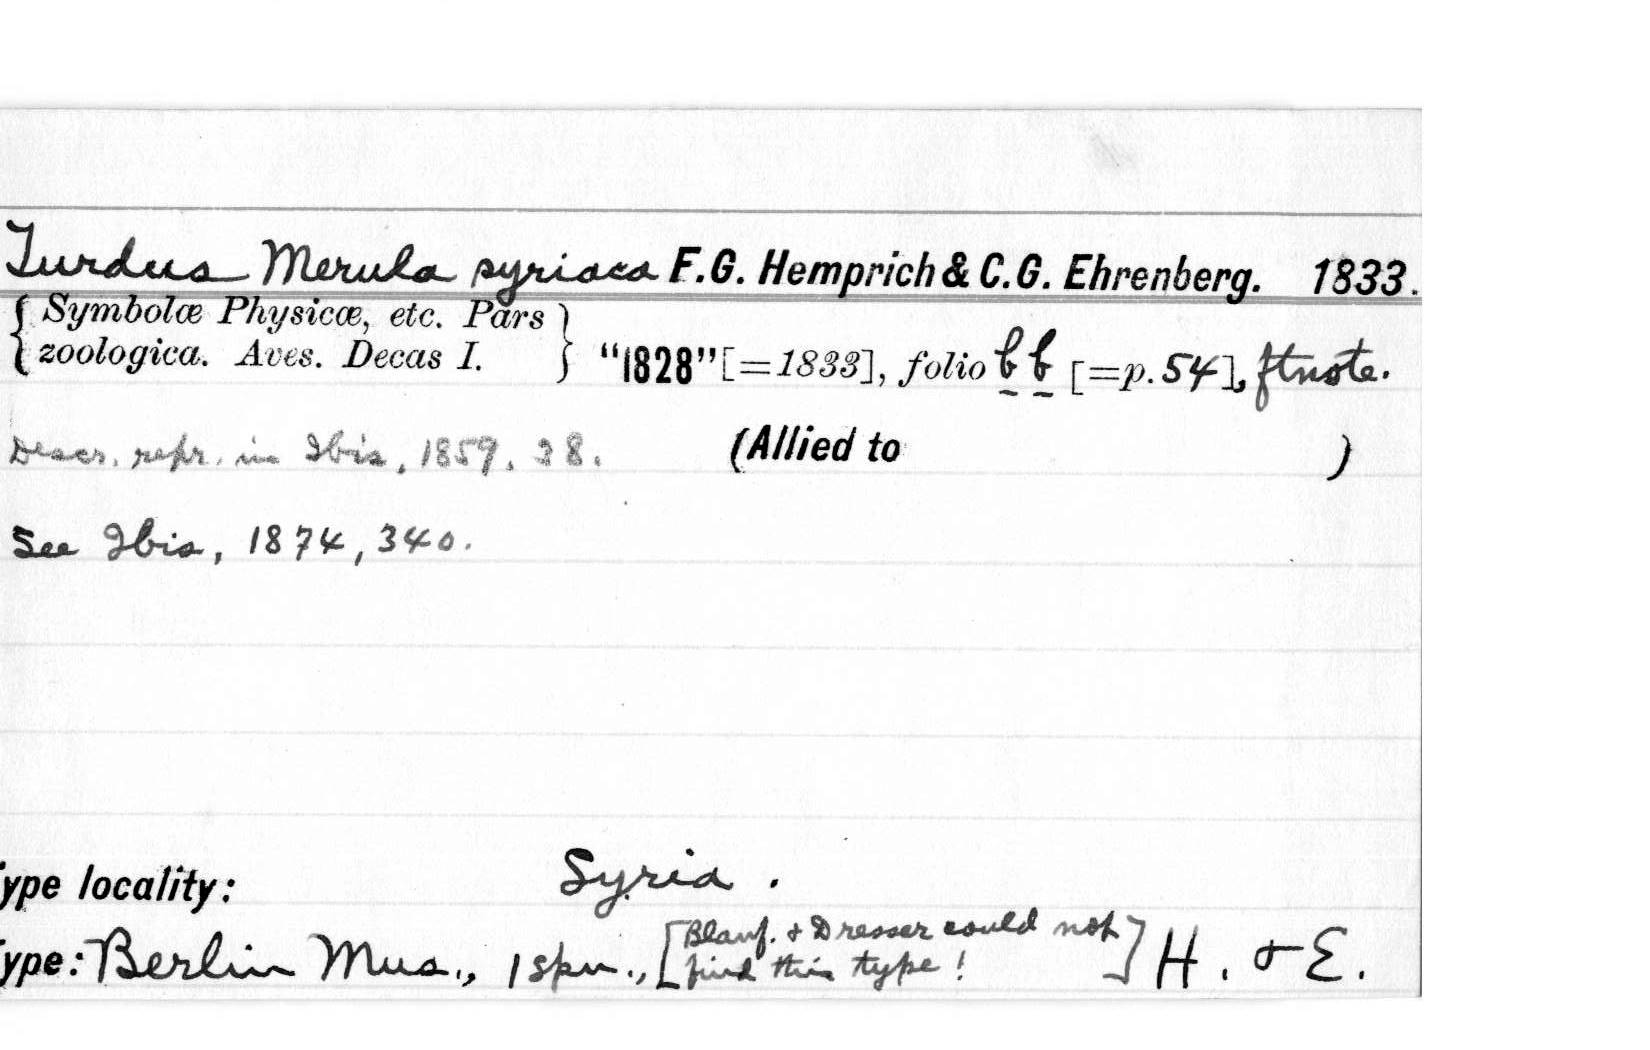 Turdus Merula syriaca F.G. Hemprich & C.G. Ehrenberg. 1833.
{Symbolæ Physicæ, etc. Pars
zoologica. Aves. Decas I.} "1828" [=1833], folio bb [=p. 54], ftnote.
Descr. repr. in Ibis, 1859, 38. (Allied to )
See Ibis, 1874, 340.
ype locality: Syria.
ype: Berlin Mus., 1 spn., [Blanf. & Dresser could not
find this type!] H. & E.